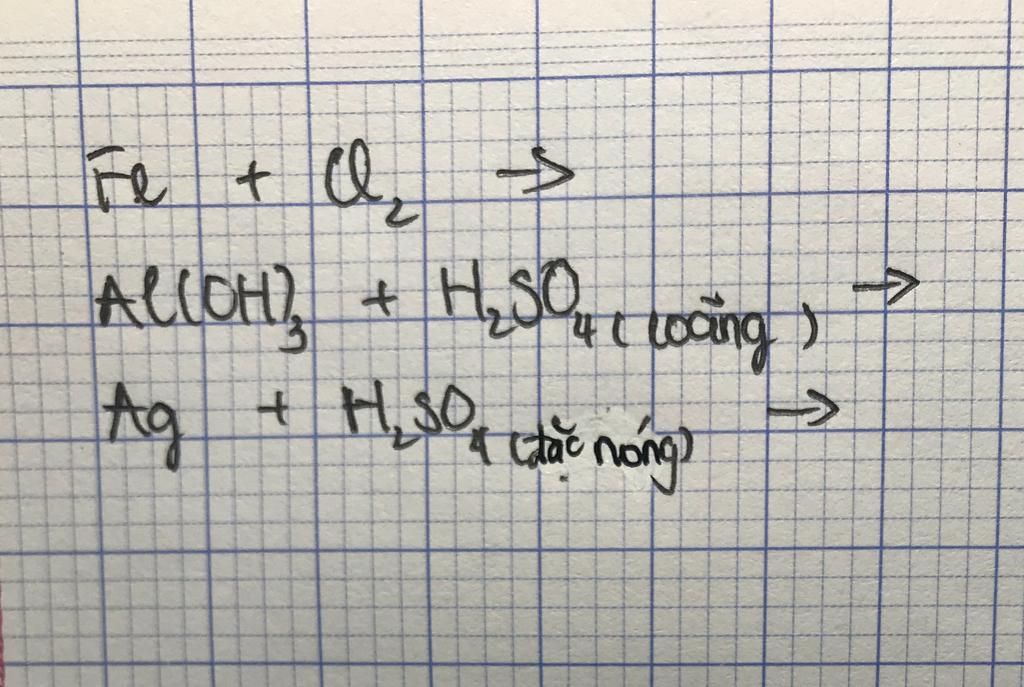 Fe + Cl₂ →
Al(OH)₃ + H₂SO₄ (loãng) →
Ag + H₂SO₄ (đặc nóng) →